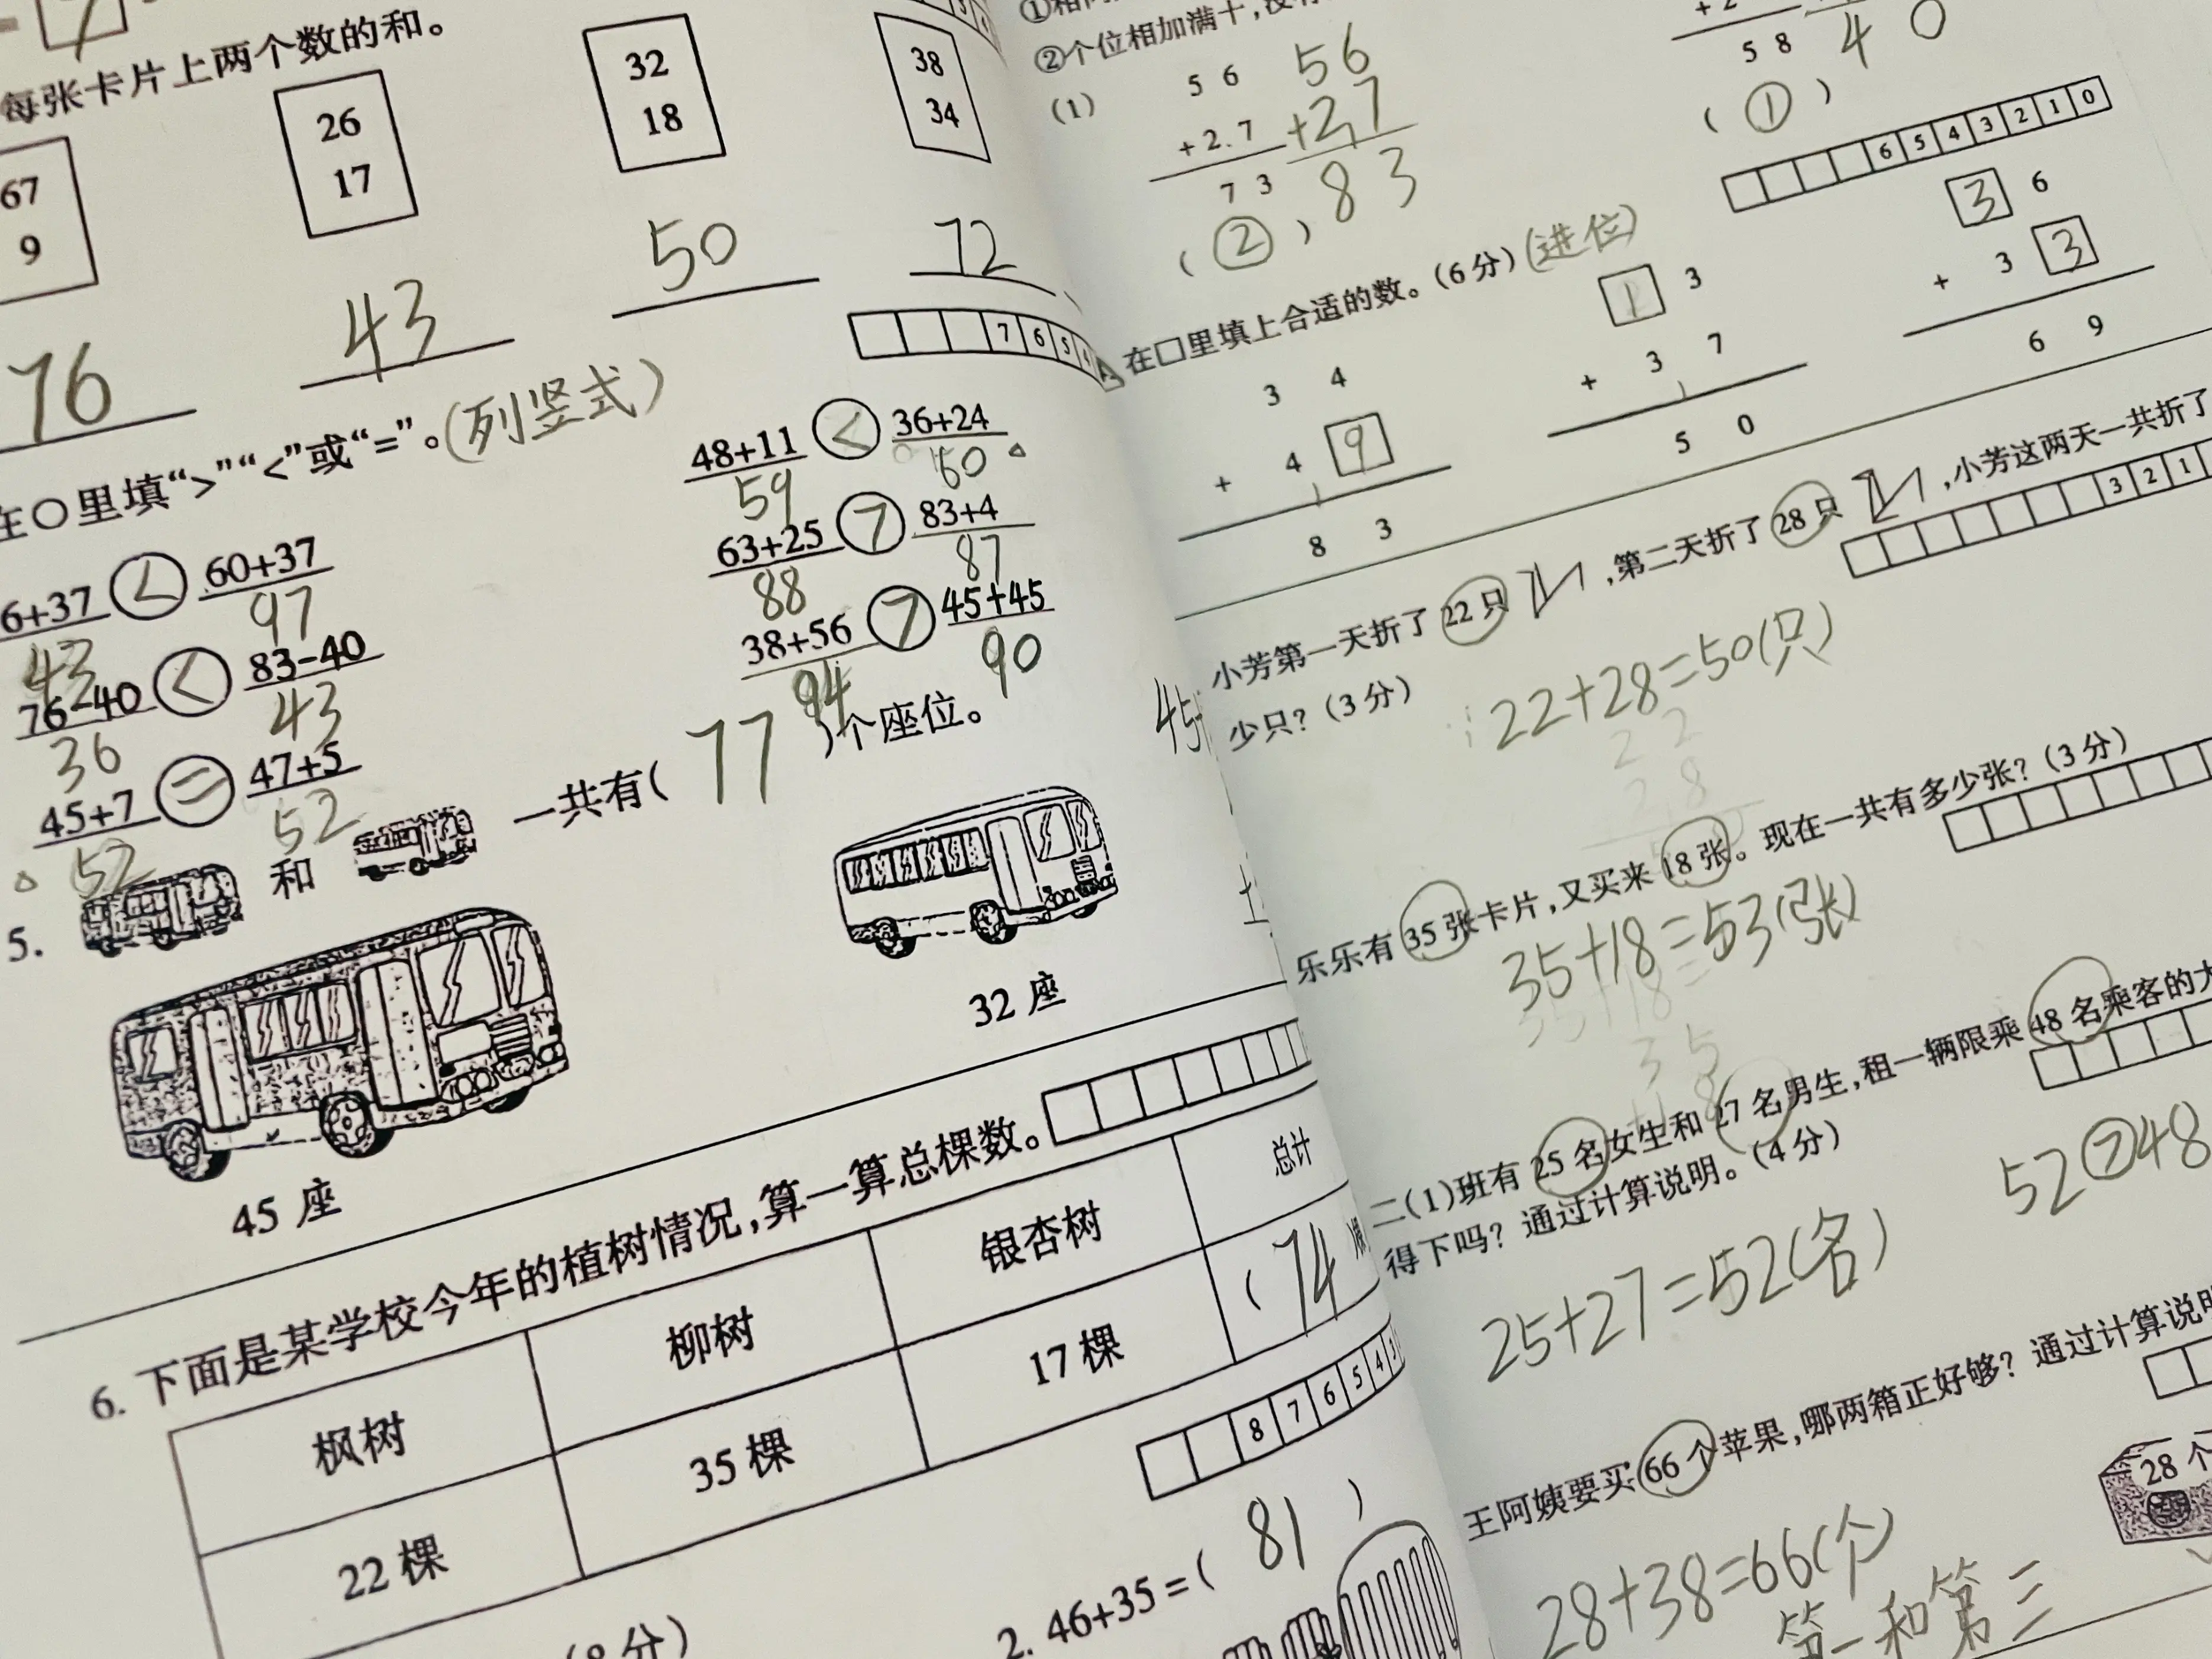 每张卡片上两个数的和。
67
9
26
17
32
18
38
34
76
43
50
72
7 6 5 4
在○里填“>”“<”或“=”。(列竖式)
6+37 < 60+37
43 97
76-40 < 83-40
36 43
45+7 = 47+5
52 52
48+11 < 36+24
59 60
63+25 > 83+4
88 87
38+56 > 45+45
94 90
5. 和 一共有( 77 )个座位。
45座
32座
6. 下面是某学校今年的植树情况,算一算总棵数。
枫树 柳树 银杏树 总计
22棵 35棵 17棵 ( 74
8 7 6 5 4 3
(8分)
2. 46+35=( 81 )
②个位相加满十,没
(1)
5 6
+2.7
7 3
56
+27
83
( ② )
5 8
4 0
( ① )
6 5 4 3 2 1 0
在□里填上合适的数。(6分)(进位)
3 4
+ 4 9
1
8 3
1 3
+ 3 7
1
5 0
3 6
+ 3 3
6 9
3 2 1
小芳第一天折了22只 ,第二天折了28只 ,小芳这两天一共折了
少只?(3分)
22+28=50(只)
2 2
2 8
乐乐有35张卡片,又买来18张。现在一共有多少张?(3分)
35+18=53(张)
35+18=
3 5
+1 8
二(1)班有25名女生和27名男生,租一辆限乘48名乘客的大
得下吗?通过计算说明。(4分)
25+27=52(名)
52>48
王阿姨要买66个苹果,哪两箱正好够?通过计算说明
28个
28+38=66(个)
第一和第三